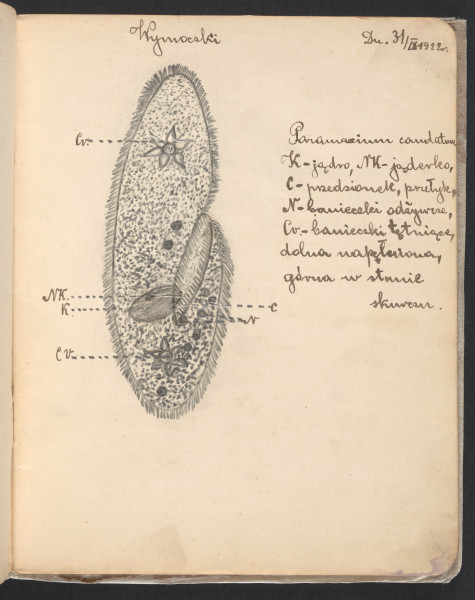 Wymoczki
Dn. 31/IX 1922r.
Cv.
Paramaecium caudatum
K-jądro, NK-jąderko,
C-przedsionek, przełyk,
N-banieczki odżywcze,
Cv-banieczki tętniące,
dolna napełniona,
górna w stanie
skurczu.
NK.
K-
C
N
CV-